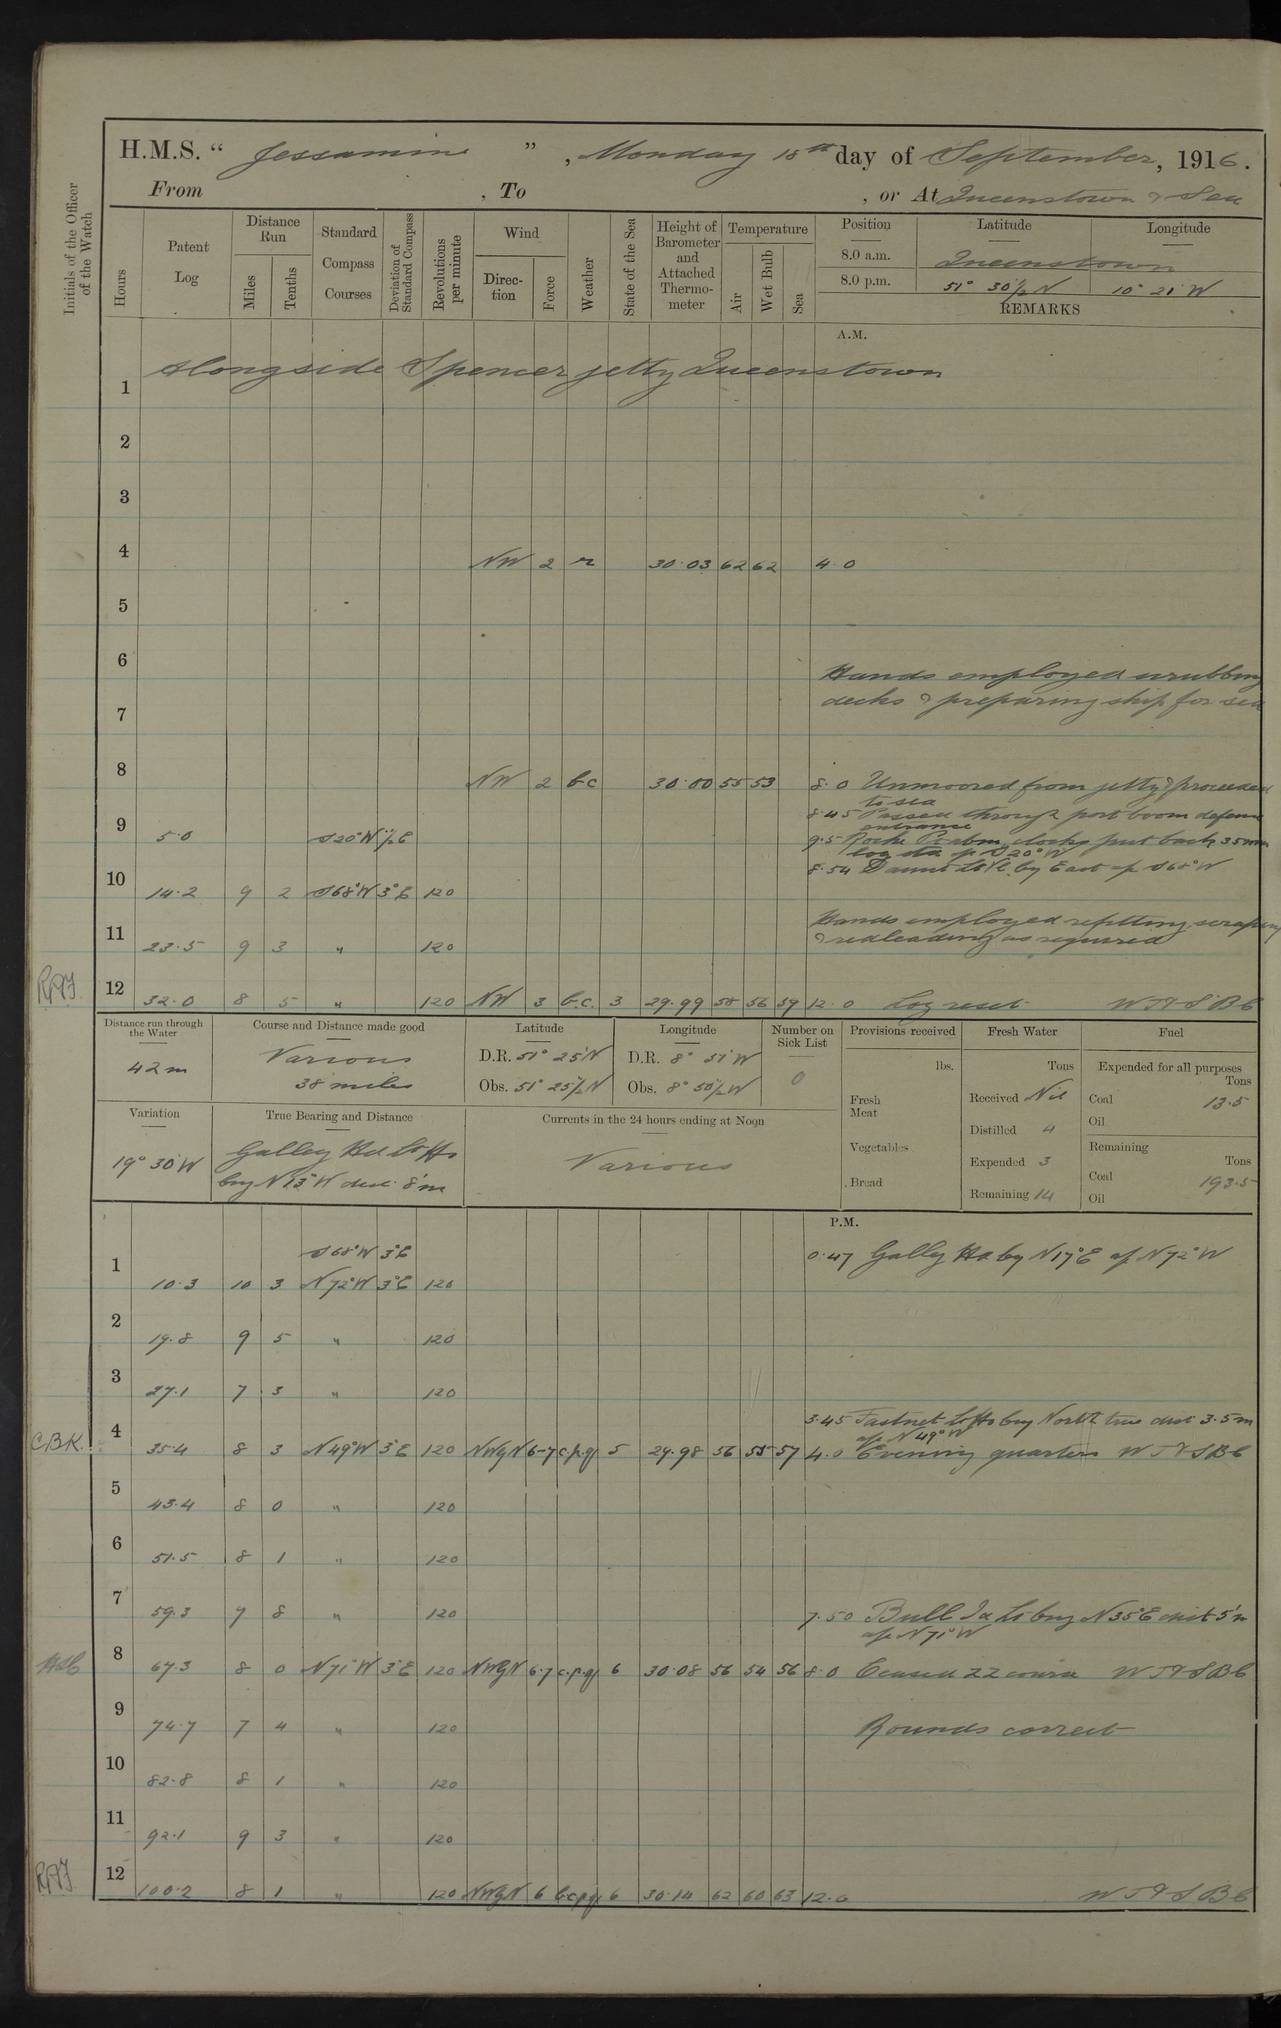 H.M.S. “ Jessamine ” , Monday 18th day of September, 1916.
From , To , or At Queenstown & Sea
Initials of the Officer of the Watch
Hours
Patent Log
Distance Run
Miles
Tenths
Standard Compass Courses
Deviation of Standard Compass
Revolutions per minute
Wind
Direction
Force
Weather
State of the Sea
Height of Barometer and Attached Thermometer
Temperature
Air
Wet Bulb
Sea
Position Latitude Longitude
8.0 a.m. Queenstown
8.0 p.m. 51° 30½ N 10° 21' W
REMARKS
A.M.
Alongside Spencer jetty Queenstown
1
2
3
4 NW 2 r 30.03 62 62 4.0
5
6
Hands employed scrubbing
decks & preparing ship for sea
7
8 NW 2 bc 30.00 55 53 8.0 Unmoored from jetty & proceeded
to sea
8.45 Passed through port boom defence
entrance
9 5.0 S20°W ½E 9.5 Roche Pt abm, clocks put back 35 min
S 20° W
8.54 Daunt Lt Vl. by East a/c S68°W
10 14.2 9 2 S68°W 3°E 120
Hands employed refitting, scraping
& redleading as required
11 23.5 9 3 " 120
RAJ 12 32.0 8 5 " 120 NW 3 b.c. 3 29.99 58 56 59 12.0 Log reset
Distance run through the Water
42m
Course and Distance made good
Various
38 miles
Latitude
D.R. 51° 25' N
Obs. 51° 25½ N
Longitude
D.R. 8° 51' W
Obs. 8° 50½ W
Number on Sick List
0
Provisions received
lbs.
Fresh Meat
Vegetables
Bread
Fresh Water
Tons
Received Nil
Distilled 4
Expended 3
Remaining 14
Fuel
Expended for all purposes
Tons
Coal 13.5
Oil
Remaining
Tons
Coal 193.5
Oil
Variation
19° 30' W
True Bearing and Distance
Galley Hd Lt Ho
brg N13°W dist. 8'm
Currents in the 24 hours ending at Noon
Various
P.M.
S68°W 3°E 0.47 Galley Hd by N17°E a/c N72°W
1 10.3 10 3 N72°W 3°E 120
2 19.8 9 5 " 120
3 27.1 7 3 " 120
3.45 Fastnet Lt Ho brg North true dist 3.5m
a/c N49°W
CBK. 4 35.4 8 3 N49°W 3°E 120 NWgN 6-7 c.p.q 5 29.98 56 55 57 4.0 Evening quarters
5 43.4 8 0 " 120
6 51.5 8 1 " 120
7 59.3 7 8 " 120 7.50 Bull Id Lt brg N35°E dist 5'm
a/c N71°W
8 67.3 8 0 N71°W 3°E 120 NWgN 6.7 c.p.q 6 30.08 56 54 56 8.0 Ceased ZZ course
9 74.7 7 4 " 120 Rounds correct
10 82.8 8 1 " 120
11 92.1 9 3 " 120
RAJ 12 100.2 8 1 " 120 NWgN 6 bcpq 6 30.14 62 60 63 12.0